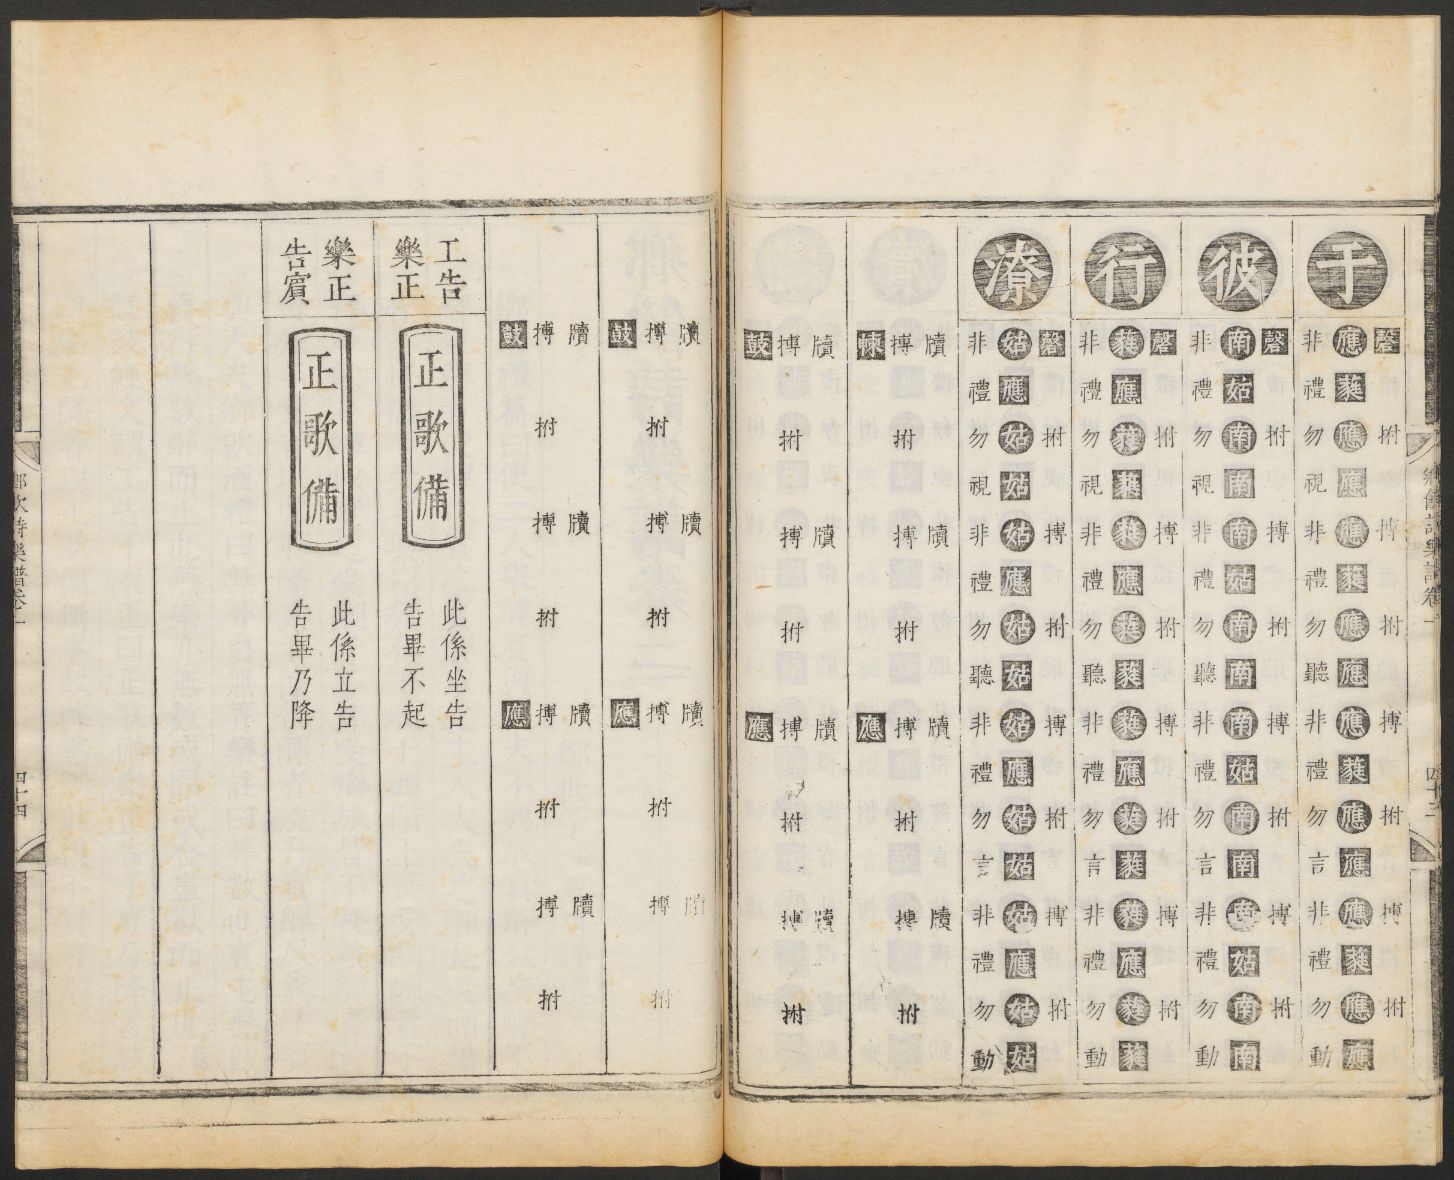 鄉飲詩樂譜卷一
四十三
于
磬拊搏拊搏拊搏拊
應蕤應應應蕤應應應蕤應應應蕤應應
非禮勿視非禮勿聽非禮勿言非禮勿動
彼
磬拊搏拊搏拊搏拊
南姑南南南姑南南南姑南南南姑南南
非禮勿視非禮勿聽非禮勿言非禮勿動
行
磬拊搏拊搏拊搏拊
蕤應蕤蕤蕤應蕤蕤蕤應蕤蕤蕤應蕤蕤
非禮勿視非禮勿聽非禮勿言非禮勿動
潦
磬拊搏拊搏拊搏拊
姑應姑姑姑應姑姑姑應姑姑姑應姑姑
非禮勿視非禮勿聽非禮勿言非禮勿動
牘牘牘牘
搏拊搏拊搏拊搏拊
朄應
牘牘牘牘
搏拊搏拊搏拊搏拊
鼓應
牘牘牘牘
搏拊搏拊搏拊搏拊
鼓應
牘牘牘牘
搏拊搏拊搏拊搏拊
鼓應
工告
樂正
正歌備
此係坐告
告畢不起
樂正
告賓
正歌備
此係立告
告畢乃降
鄉飲詩樂譜卷一
四十四